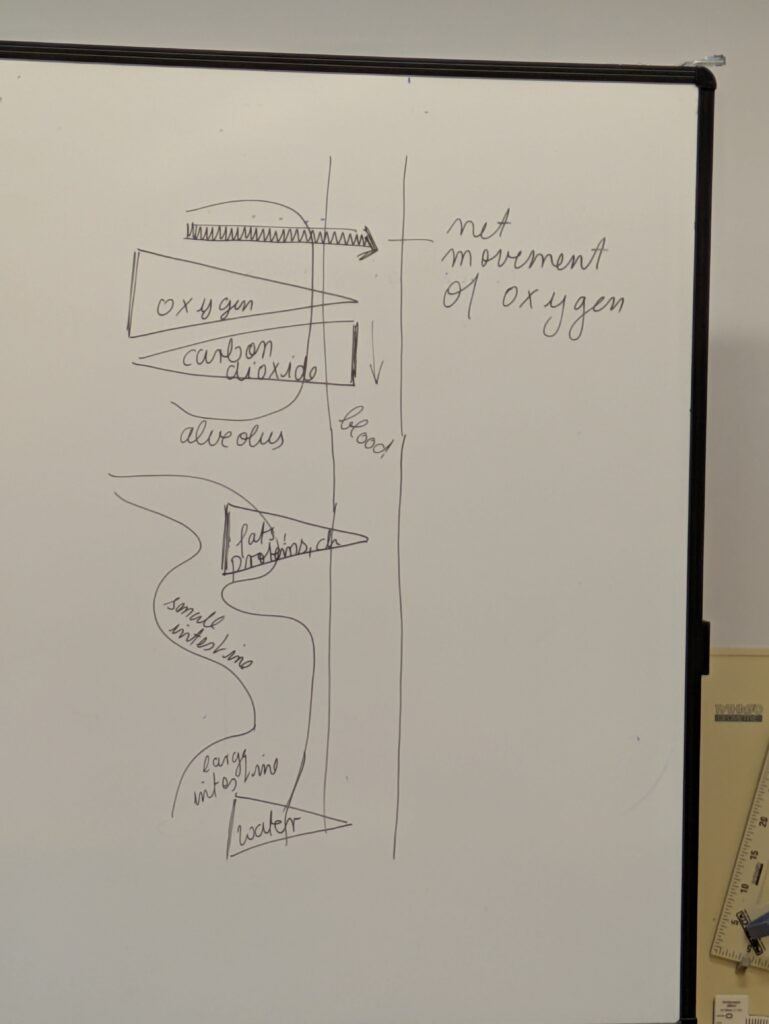 net
movement
of oxygen
oxygen
carbon
dioxide
alveolus
blood
fats,
proteins, ch
small
intestine
large
intestine
water
20
15
10
5